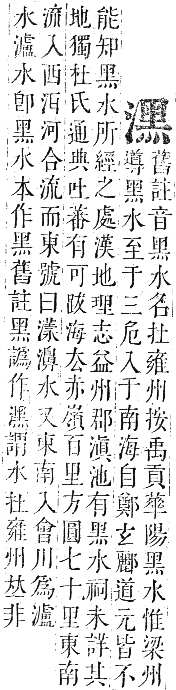 潶
舊註音黑水名在雍州按禹貢華陽黑水惟梁州
導黑水至于三危入于南海自鄭玄酈道元皆不
能知黑水所經之處漢地理志益州郡滇池有黑水祠未詳其
地獨杜氏通典吐蕃有可跋海去赤嶺百里方圓七十里東南
流入西洱河合流而東號曰漾濞水又東南入會川為瀘
水瀘水卽黑水本作黑舊註黑譌作潶謂水在雍州𠀤非